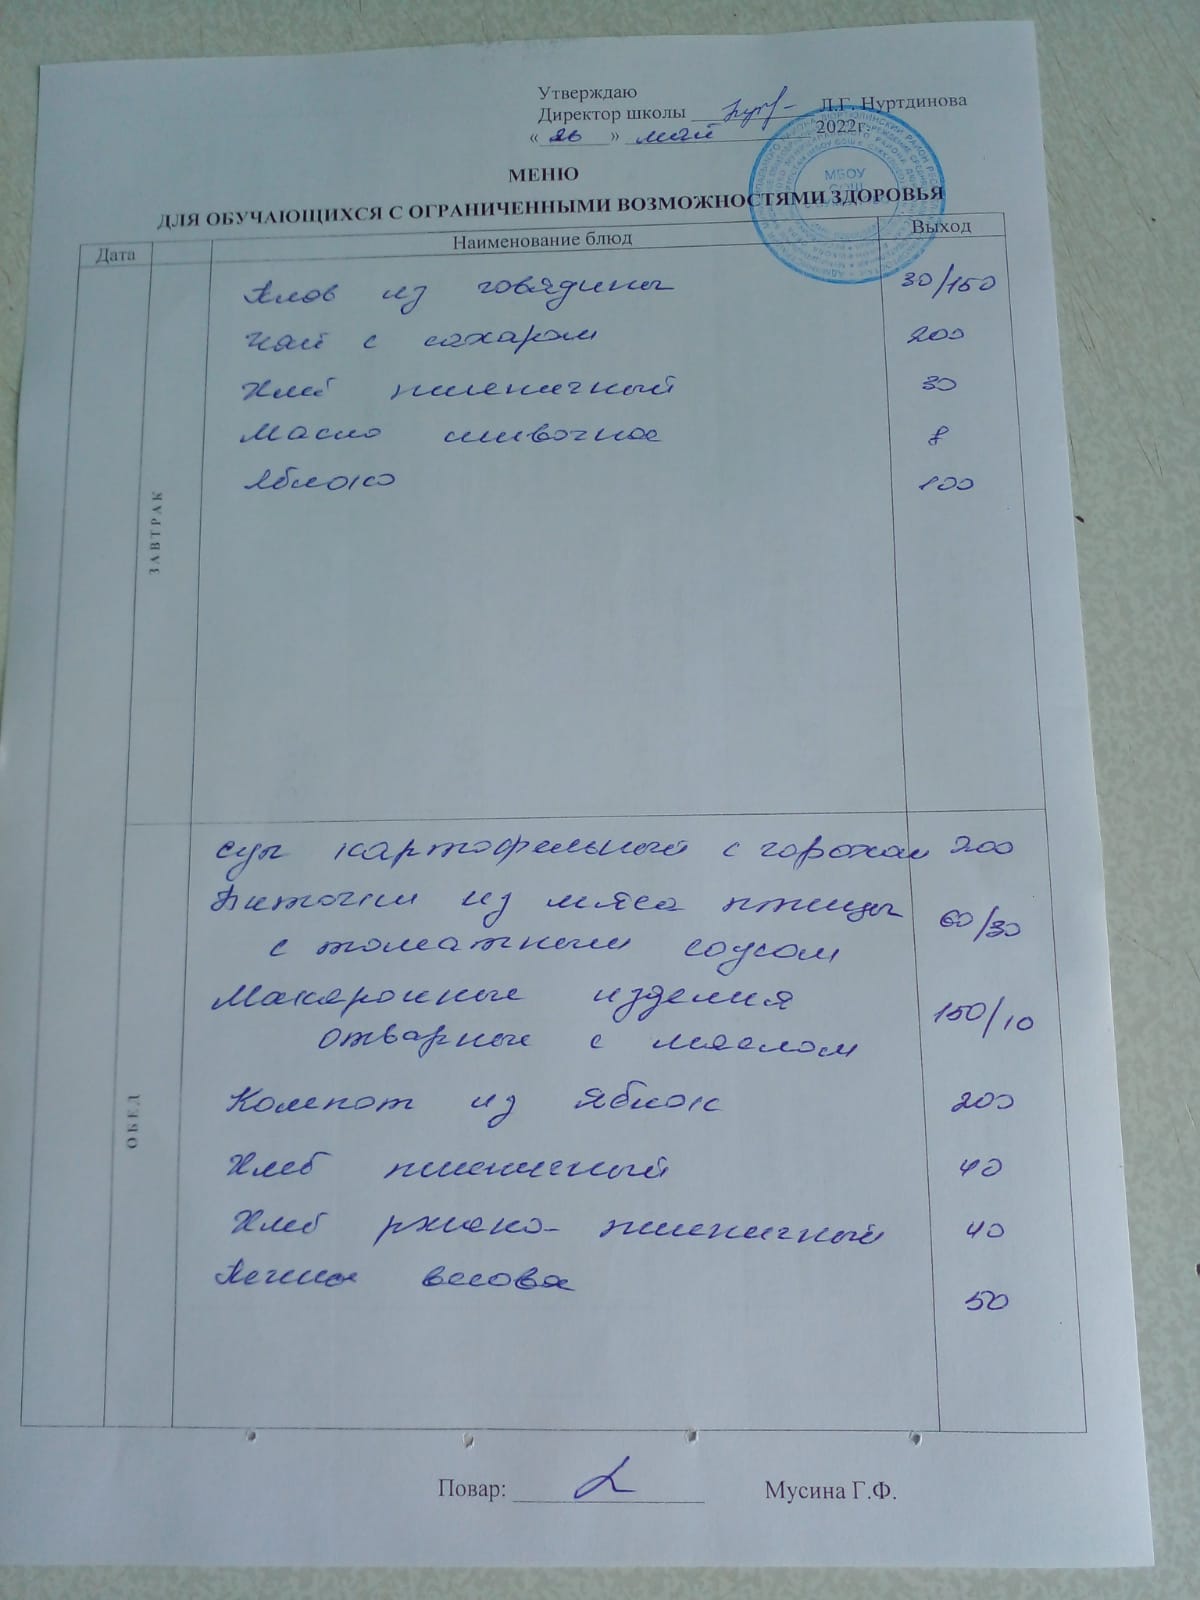 Утверждаю
Директор школы Л.Г. Нуртдинова
« 26 » май 2022г.
МБОУ
СОШ
МЕНЮ
ДЛЯ ОБУЧАЮЩИХСЯ С ОГРАНИЧЕННЫМИ ВОЗМОЖНОСТЯМИ ЗДОРОВЬЯ
Дата Наименование блюд Выход
ЗАВТРАК
Плов из говядины 30/150
Чай с сахаром 200
Хлеб пшеничный 30
Масло сливочное 8
Яблоко 100
ОБЕД
суп картофельный с горохом 200
Биточки из мяса птицы 60/30
с томатным соусом
Макаронные изделия 150/10
отварные с маслом
Компот из яблок 200
Хлеб пшеничный 40
Хлеб ржано-пшеничный 40
Печенье весовое 50
Повар: Мусина Г.Ф.